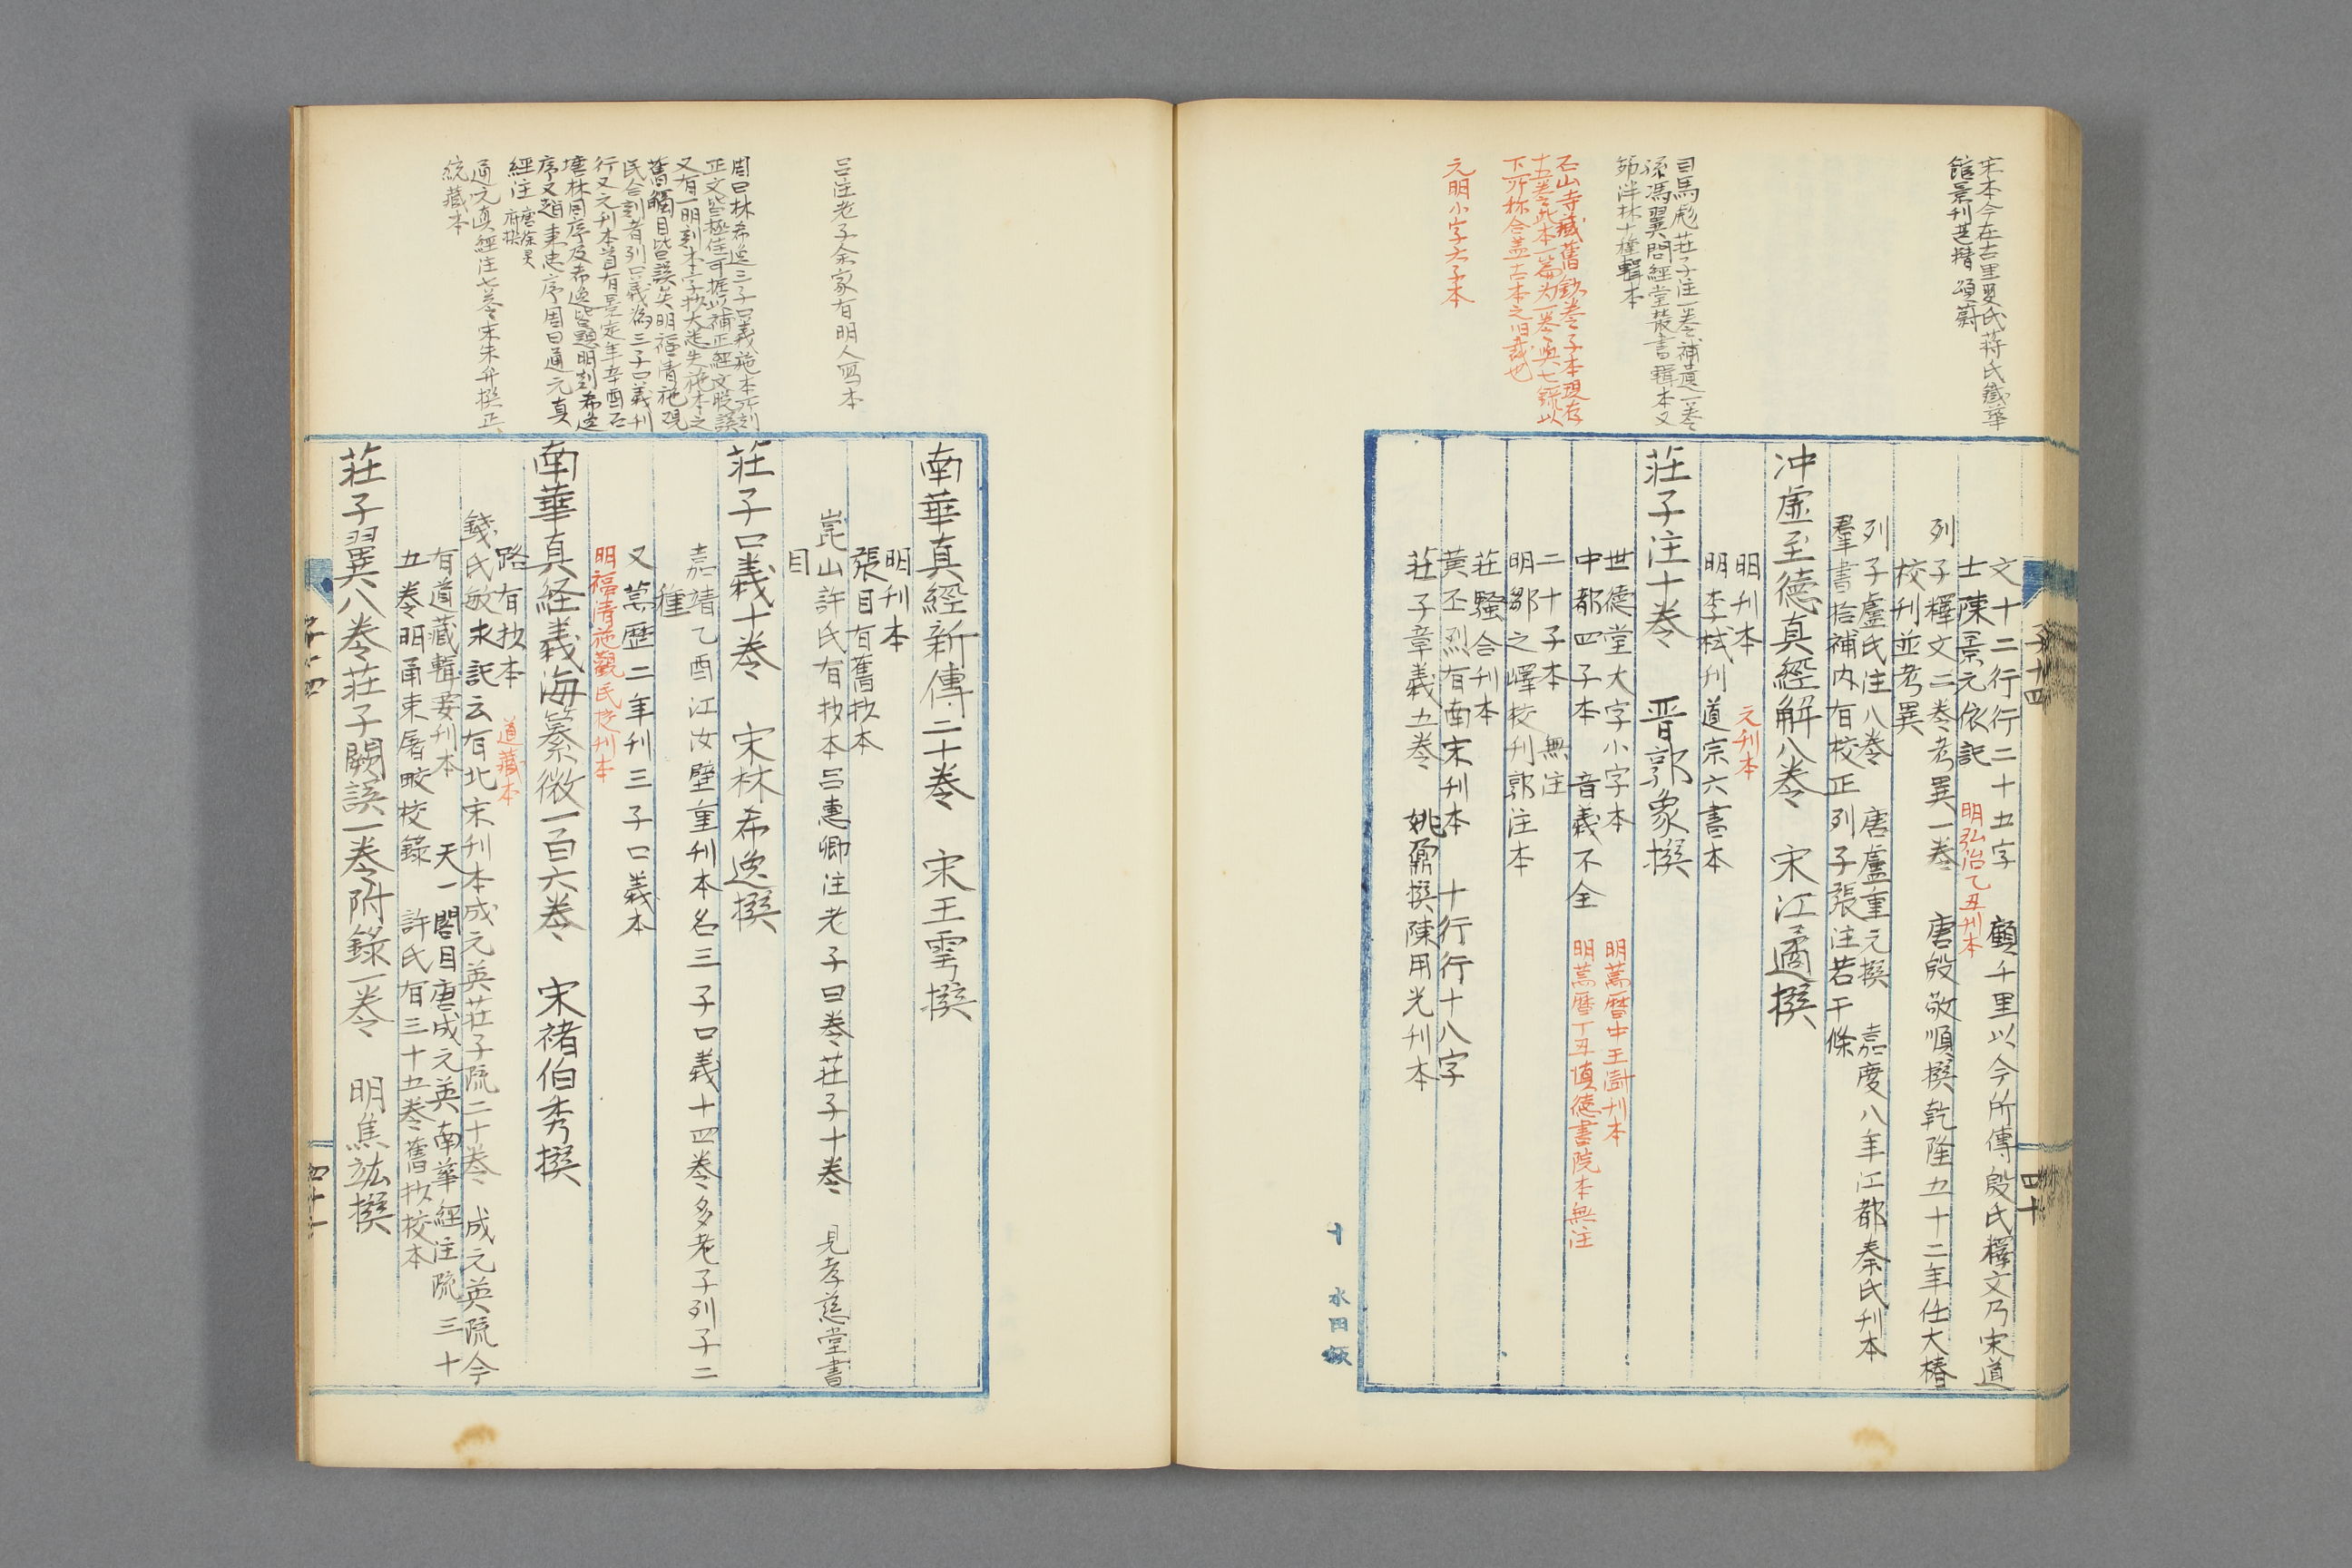 宋本今在古里瞿氏蒋氏鐵華
館景刊甚精 頌蔚
司馬彪荘子注一巻補遺一巻
孫馮翼問經堂叢書輯本又
茆泮林十種輯本
石山寺藏舊鈔巻子本現存
十五巻此本一篇为一巻與七錄以
下所称合盖古本之旧裁也
元明小字六子本
子十四
四十
文十二行行二十五字 顧千里以今所傳殷氏釋文乃宋道
士陳景元依記 明弘治乙丑刊本
列子釋文二巻考異一巻 唐殷敬順撰乾隆五十二年任大椿
校刊並考異
列子盧氏注八巻 唐盧重元撰 嘉慶八年江都秦氏刊本
羣書拾補内有校正列子張注若干條
冲虚至徳真經解八巻 宋江遹撰
明刊本 元刊本
明李栻刊道宗六書本
荘子注十巻 晋郭象撰
世徳堂大字小字本 明萬暦中王澍刊本
中都四子本 音義不全 明萬暦丁丑慎徳書院本無注
二十子本 無注
明鄒之嶧校刊郭注本
荘騒合刊本
黄丕烈有南宋刊本 十行行十八字
荘子章義五巻 姚鼐撰陳用光刊本
十 水田
呂注老子余家有明人写本
周曰林希逸三子口義施本所刻
正文皆極佳可据以補正經文脱誤
又有一明刻本字抄大悉失施本之
舊觸目皆誤矣明福清施觀
民合刻者列口義為三子口義刊
行又元刊本首有景定年辛酉石
塘林同序及希逸皆題明刻希逸
序又趙秉忠序周曰通元真
經注 唐徐灵府撰
通元真經注七巻宋朱弁撰正
統藏本
南華真經新傳二十巻 宋王雱撰
明刊本
張目有舊抄本
崑山許氏有抄本呂惠卿注老子曰巻荘子十巻 見孝慈堂書
目
荘子口義十巻 宋林希逸撰
嘉靖乙酉江汝壁重刊本名三子口義十四巻多老子列子二
種
又萬歴二年刊三子口義本
明福清施觀民校刊本
南華真経義海纂微一百六巻 宋褚伯秀撰
路有抄本 道藏本
錢氏敏求記云有北宋刊本成元英荘子疏二十巻 成元英疏今
有道藏輯要刊本 天一閣目唐成元英南華經注疏三十
五巻明甬東屠畯校錄 許氏有三十五巻舊抄校本
荘子翼八巻荘子闕誤一巻附錄一巻 明焦竑撰